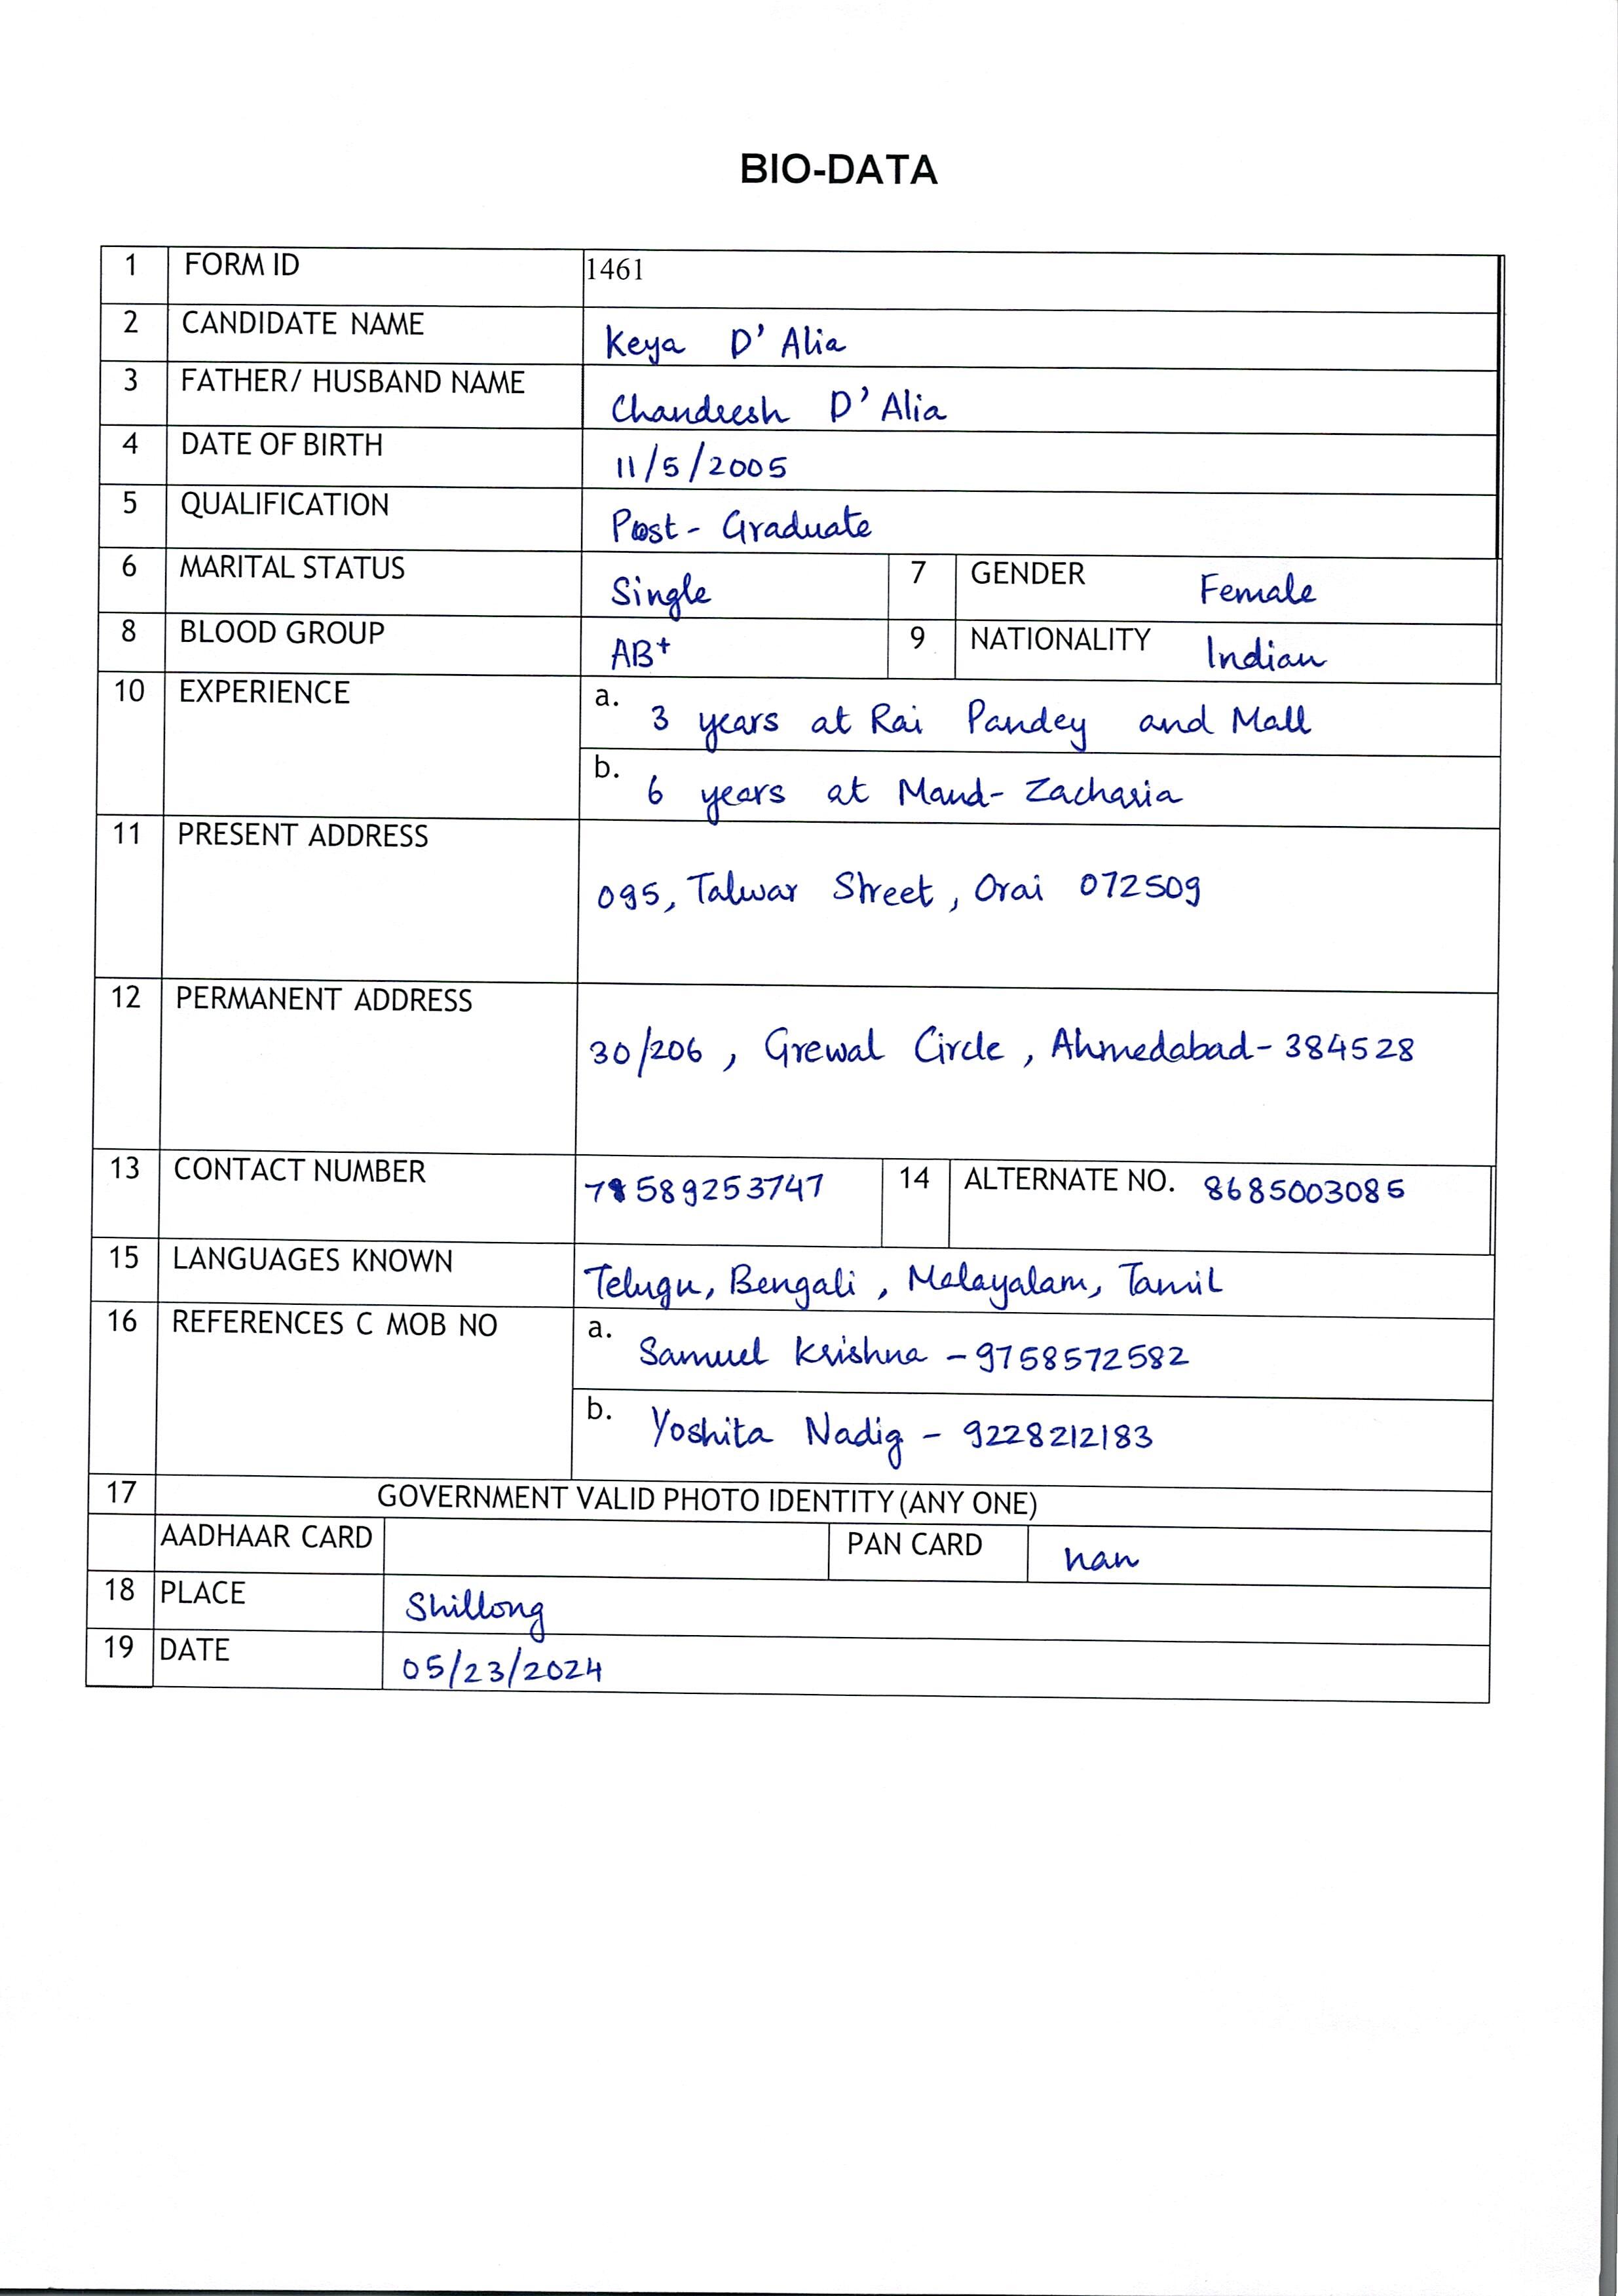 BIO-DATA
1 FORM ID 1461
2 CANDIDATE NAME Keya D'Alia
3 FATHER/ HUSBAND NAME Chandresh D'Alia
4 DATE OF BIRTH 11/5/2005
5 QUALIFICATION Post-Graduate
6 MARITAL STATUS Single 7 GENDER Female
8 BLOOD GROUP AB+ 9 NATIONALITY Indian
10 EXPERIENCE a. 3 years at Rai Pandey and Mall
b. 6 years at Mand-Zacharia
11 PRESENT ADDRESS 095, Talwar Street, Orai 072509
12 PERMANENT ADDRESS 30/206, Grewal Circle, Ahmedabad-384528
13 CONTACT NUMBER 14 ALTERNATE NO. 8685003085
15 LANGUAGES KNOWN Telugu, Bengali, Malayalam, Tamil
16 REFERENCES C MOB NO a. Samuel Krishna - 9758572582
b. Yoshita Nadig - 9228212183
17 GOVERNMENT VALID PHOTO IDENTITY (ANY ONE)
AADHAAR CARD PAN CARD nan
18 PLACE Shillong
19 DATE 05/23/2024